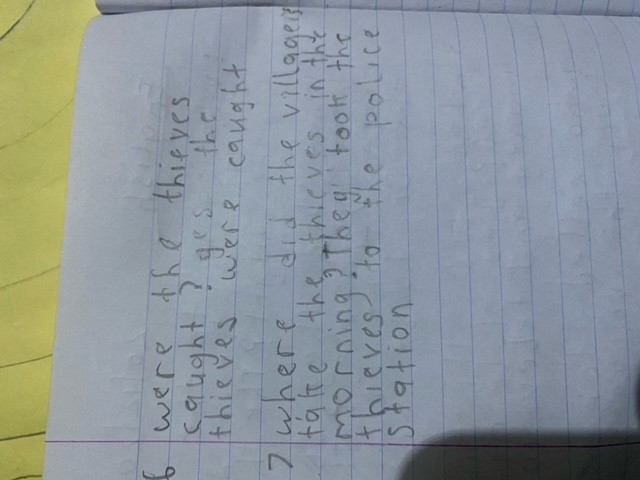 6 were the thieves
caught? yes the
thieves were caught
7 where did the villagers
take the thieves in the
morning? They took the
thieves to the police
station